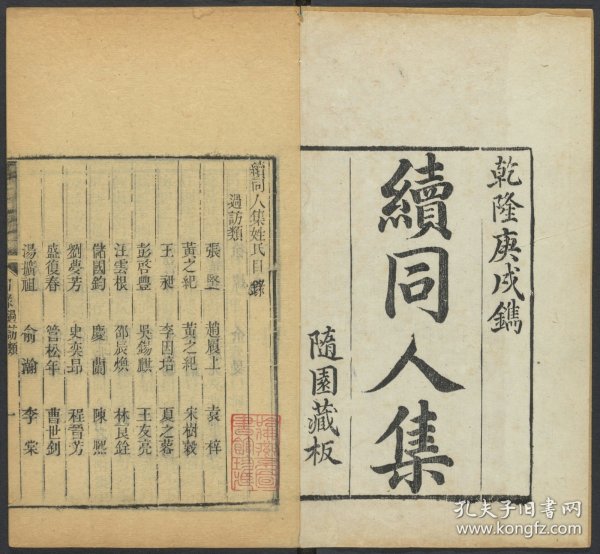 乾隆庚戌鐫
續同人集
隨園藏板
續同人集姓氏目錄
過訪類
張堅 趙履上 袁梓
黃之紀 黃之紀 朱樹穀
王昶 李因培 夏之蓉
彭啓豐 吳錫麒 王友亮
汪雲根 邵辰煥 林良銓
儲國鈞 慶蘭 陳熙
劉夢芳 史奕昂 程晉芳
盛復春 管松年 曹世釗
湯擴祖 俞瀚 李棠
過訪類 一
孔夫子旧书网
www.kongfz.com